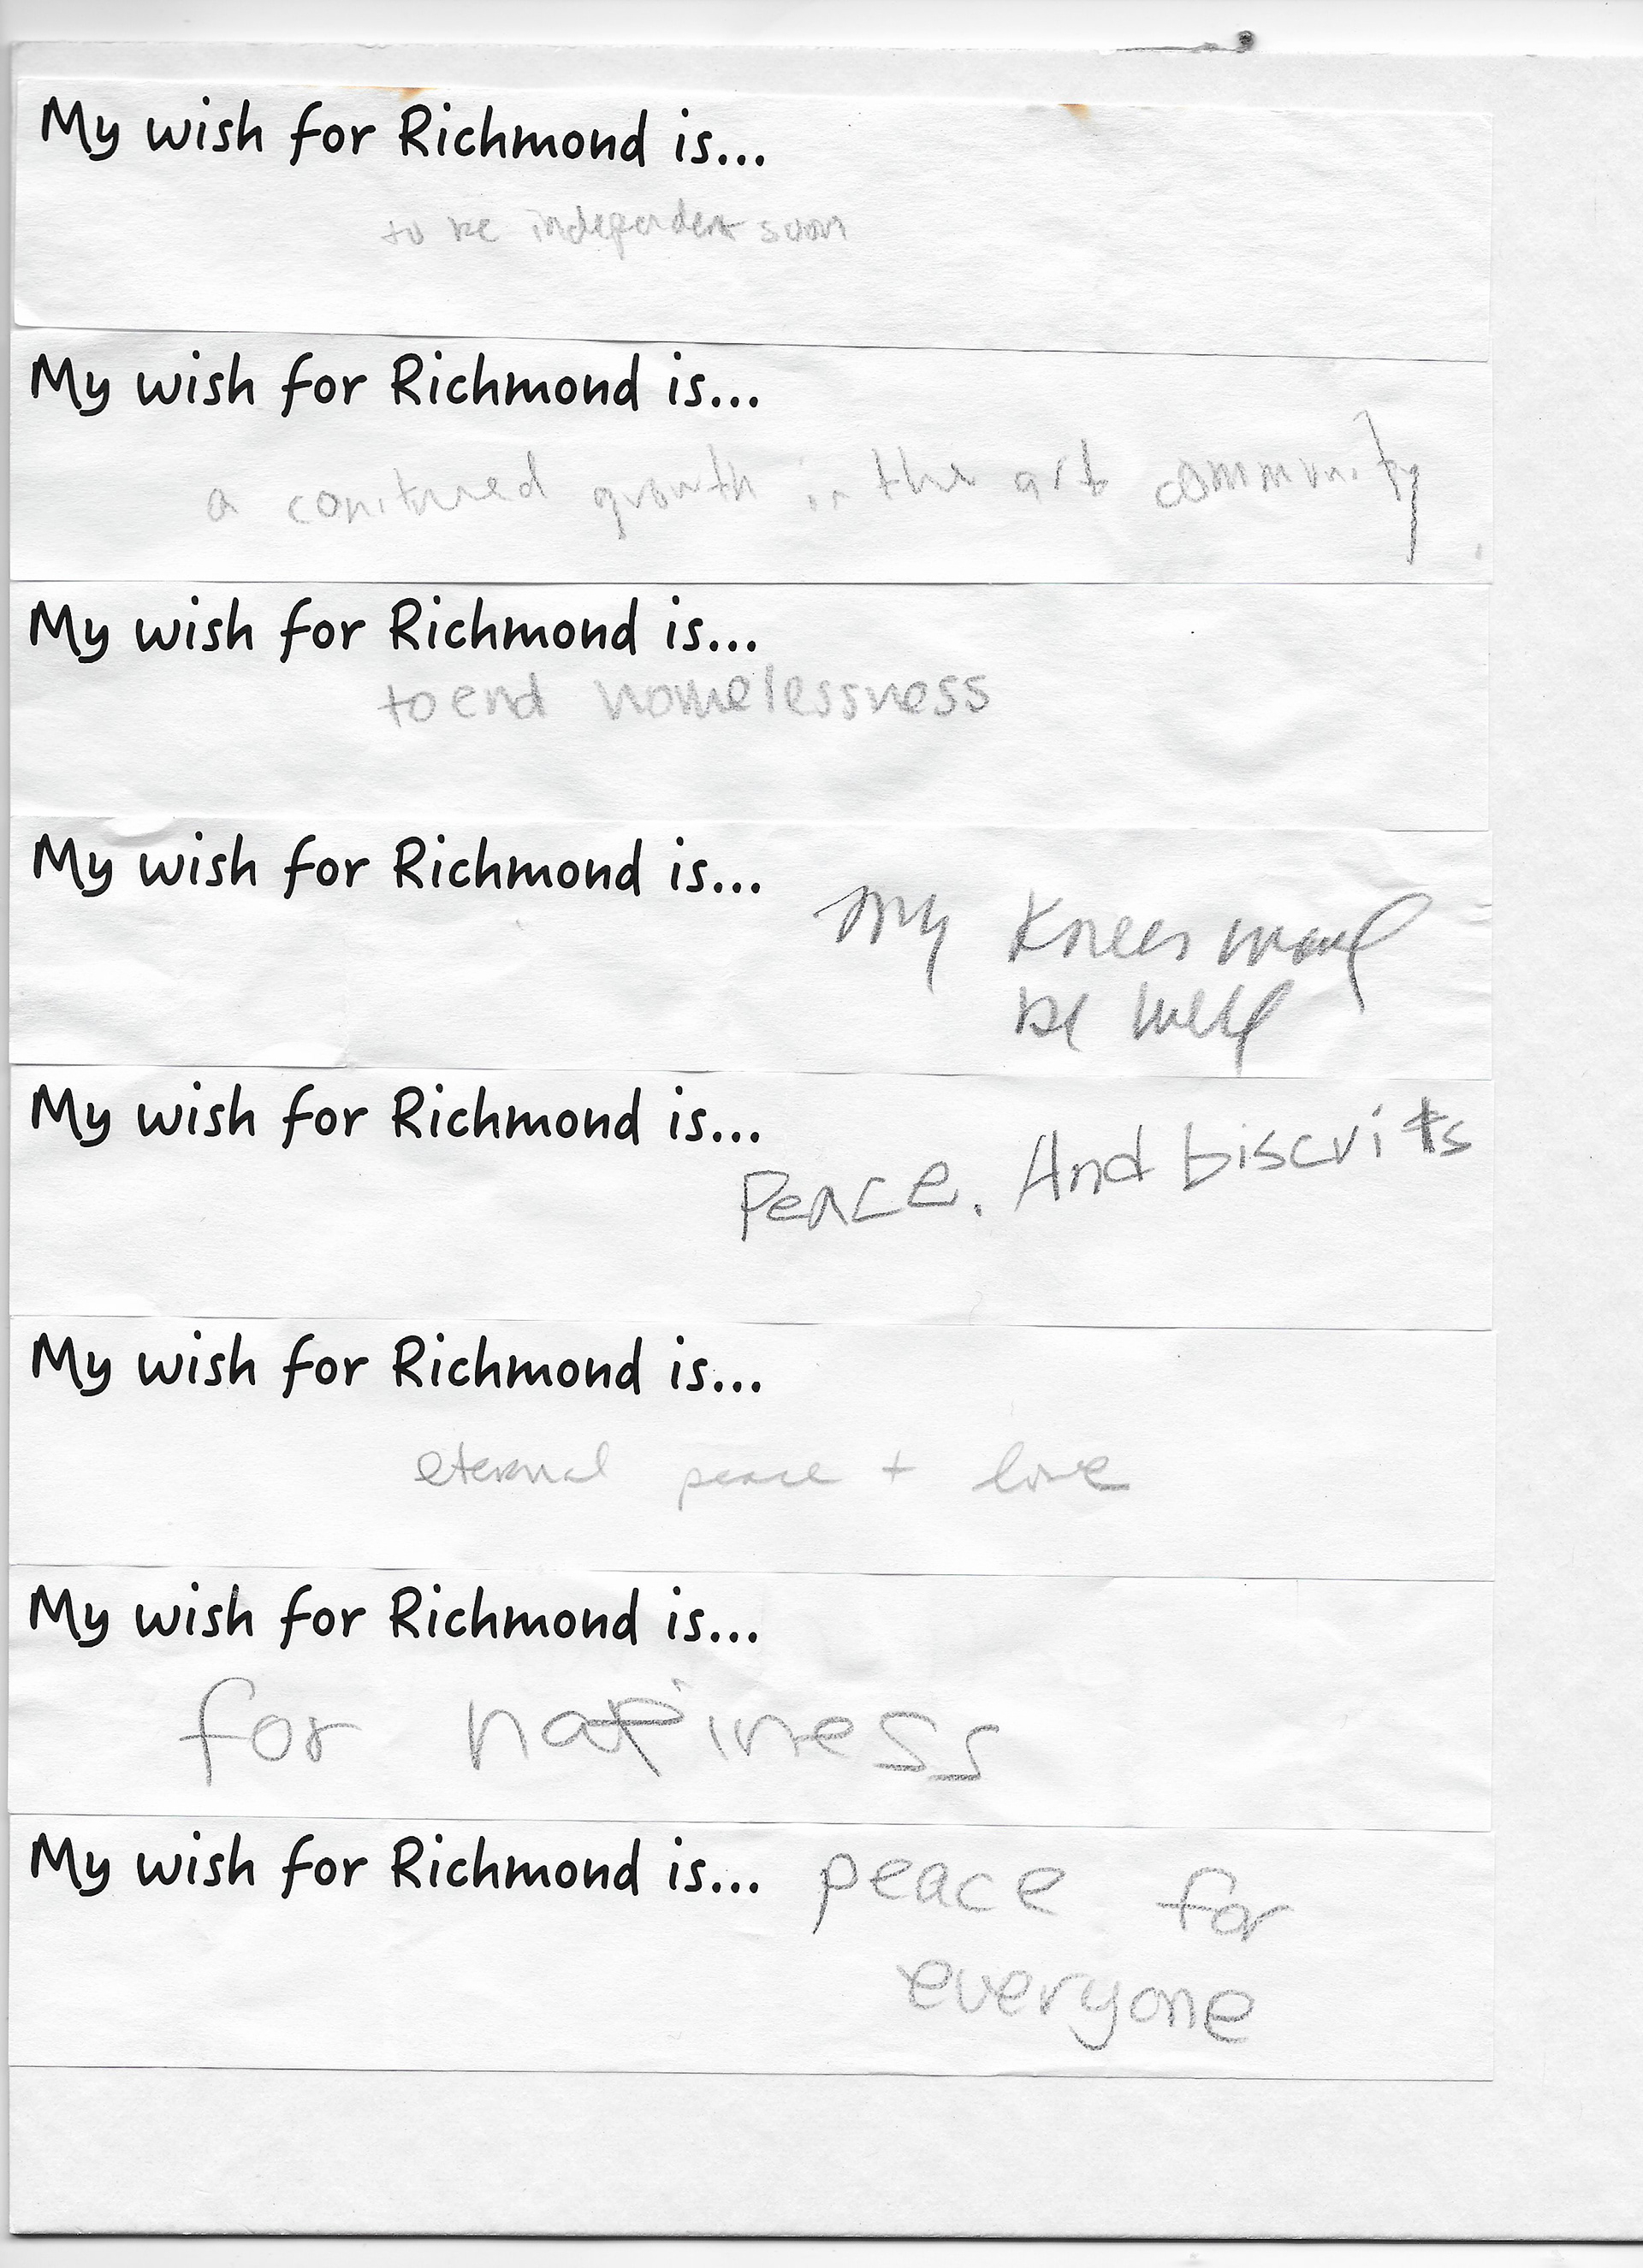 My wish for Richmond is...
to be independent soon
My wish for Richmond is...
a conitnued growth in the art community.
My wish for Richmond is...
to end homelessness
My wish for Richmond is...
my Knees may
be well
My wish for Richmond is...
Peace. And biscuits
My wish for Richmond is...
eternal peace + love
My wish for Richmond is...
for hapiness
My wish for Richmond is... peace for
everyone